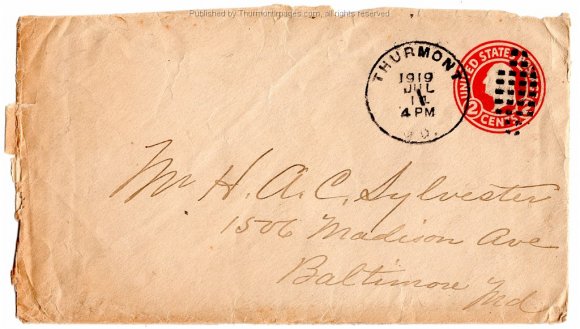 Published by Thurmontimages.com, all rights reserved
THURMONT
1919
JUL
14
4 PM
UNITED STATES
2 CENTS
Mr H. A. C. Sylvester
1506 Madison Ave
Baltimore Md